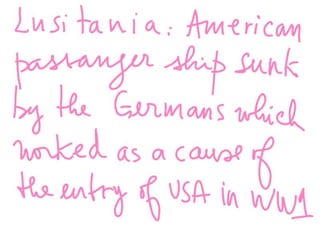 Lusitania: American
passanger ship sunk
by the Germans which
worked as a cause of
the entry of USA in WW1